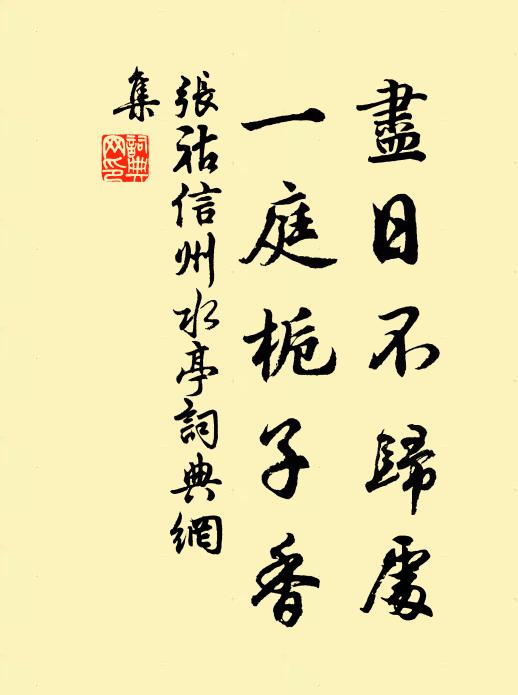 盡日不歸處
一庭梔子香
張祜信州水亭詞典網
集
詞典網印